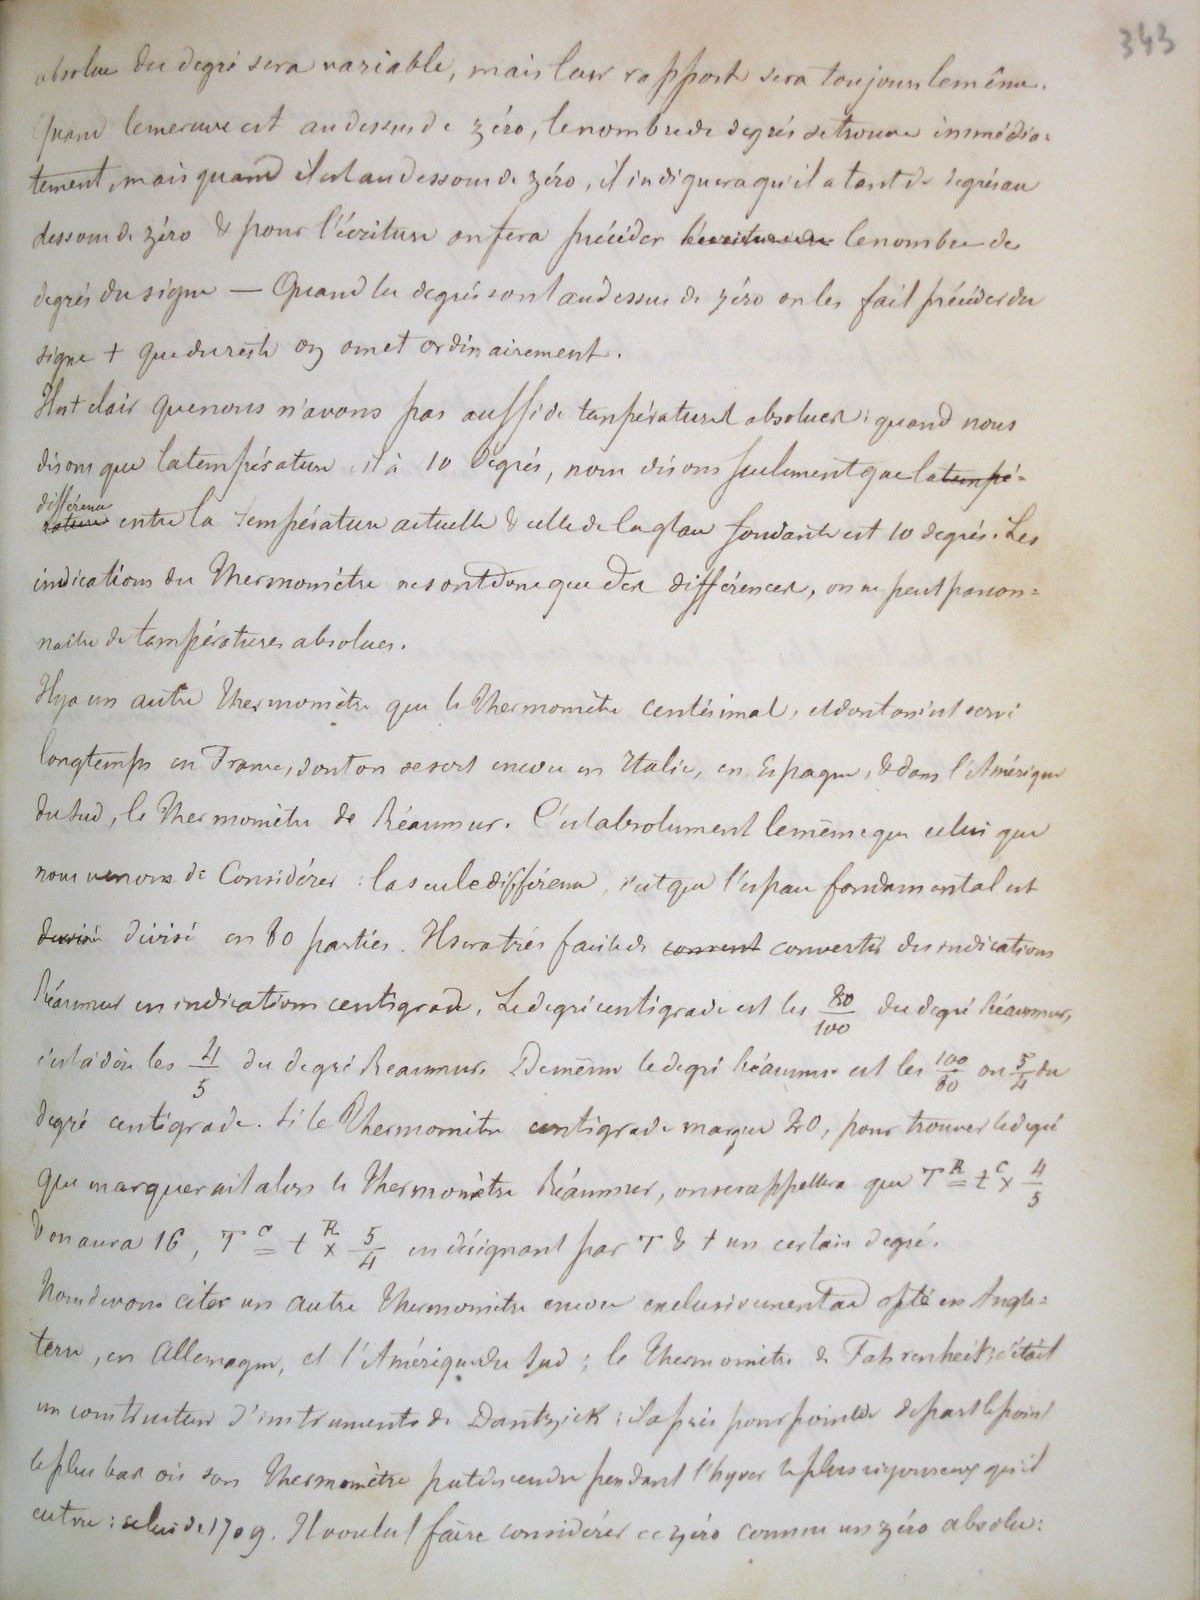 343
absolue du degré sera variable, mais leur rapport sera toujours le même.
Quand le mercure est au dessus de zéro, le nombre de degrés se trouve immédia-
tement, mais quand il est au dessous de zéro, il indiquera qu'il a tant de degrés au
dessous de zéro & pour l'écriture on fera précéder le nombre de
degrés du signe — Quand les degrés sont au dessus de zéro on les fait précéder du
signe + que du reste on omet ordinairement.
Il est clair que nous n'avons pas aussi de températures absolues : quand nous
disons que la température est à 10 degrés, nous disons seulement que la tempé-
différence
rature entre la température actuelle & celle de la glace fondante est 10 degrés. Les
indications du Thermomètre ne sont donc que des différences, on ne peut pas con=
naître de températures absolues.
Il y a un autre Thermomètre que le Thermomètre centésimal, et dont on s'est servi
longtemps en France, dont on se sert encore en Italie, en Espagne, & dans l'Amérique
du Sud, le Thermomètre de Réaumur. C'est absolument le même que celui que
nous venons de Considérer : la seule différence, c'est que l'espace fondamental est
divisé en 80 parties. Il sera très facile de convertir des indications
Réaumur en indications centigrade. Le degré centigrade est les 80/100 du degré Réaumur,
c'est à dire les 4/5 du degré Réaumur. De même le degré Réaumur est les 100/80 ou 5/4 du
degré centigrade. Si le Thermomètre centigrade marque 20, pour trouver le degré
que marquerait alors le Thermomètre Réaumur, on se rappellera que T^R = t^C × 4/5
& on aura 16, T^C = t^R × 5/4 en désignant par T & t un certain degré.
Nous devons citer un autre Thermomètre encore exclusivement adopté en Angle=
terre, en Allemagne, et l'Amérique du Sud ; le Thermomètre de Fahrenheit ; c'était
un constructeur d'instruments de Dantzick : il a pris pour point de départ le point
le plus bas où son Thermomètre put descendre pendant l'hyver le plus rigoureux qu'il
eut vu : celui de 1709. Il voulut faire considérer ce zéro comme un zéro absolu :